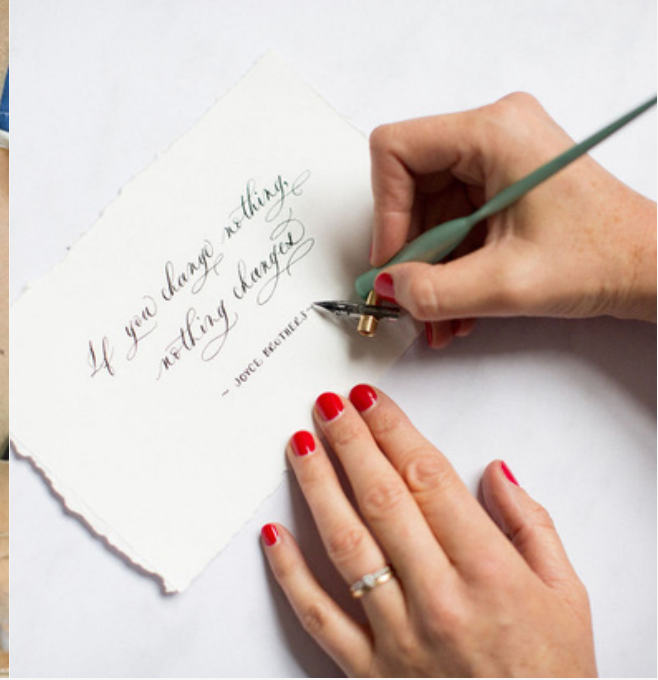 If you change nothing,
nothing changes
~ JOYCE BROTHERS~